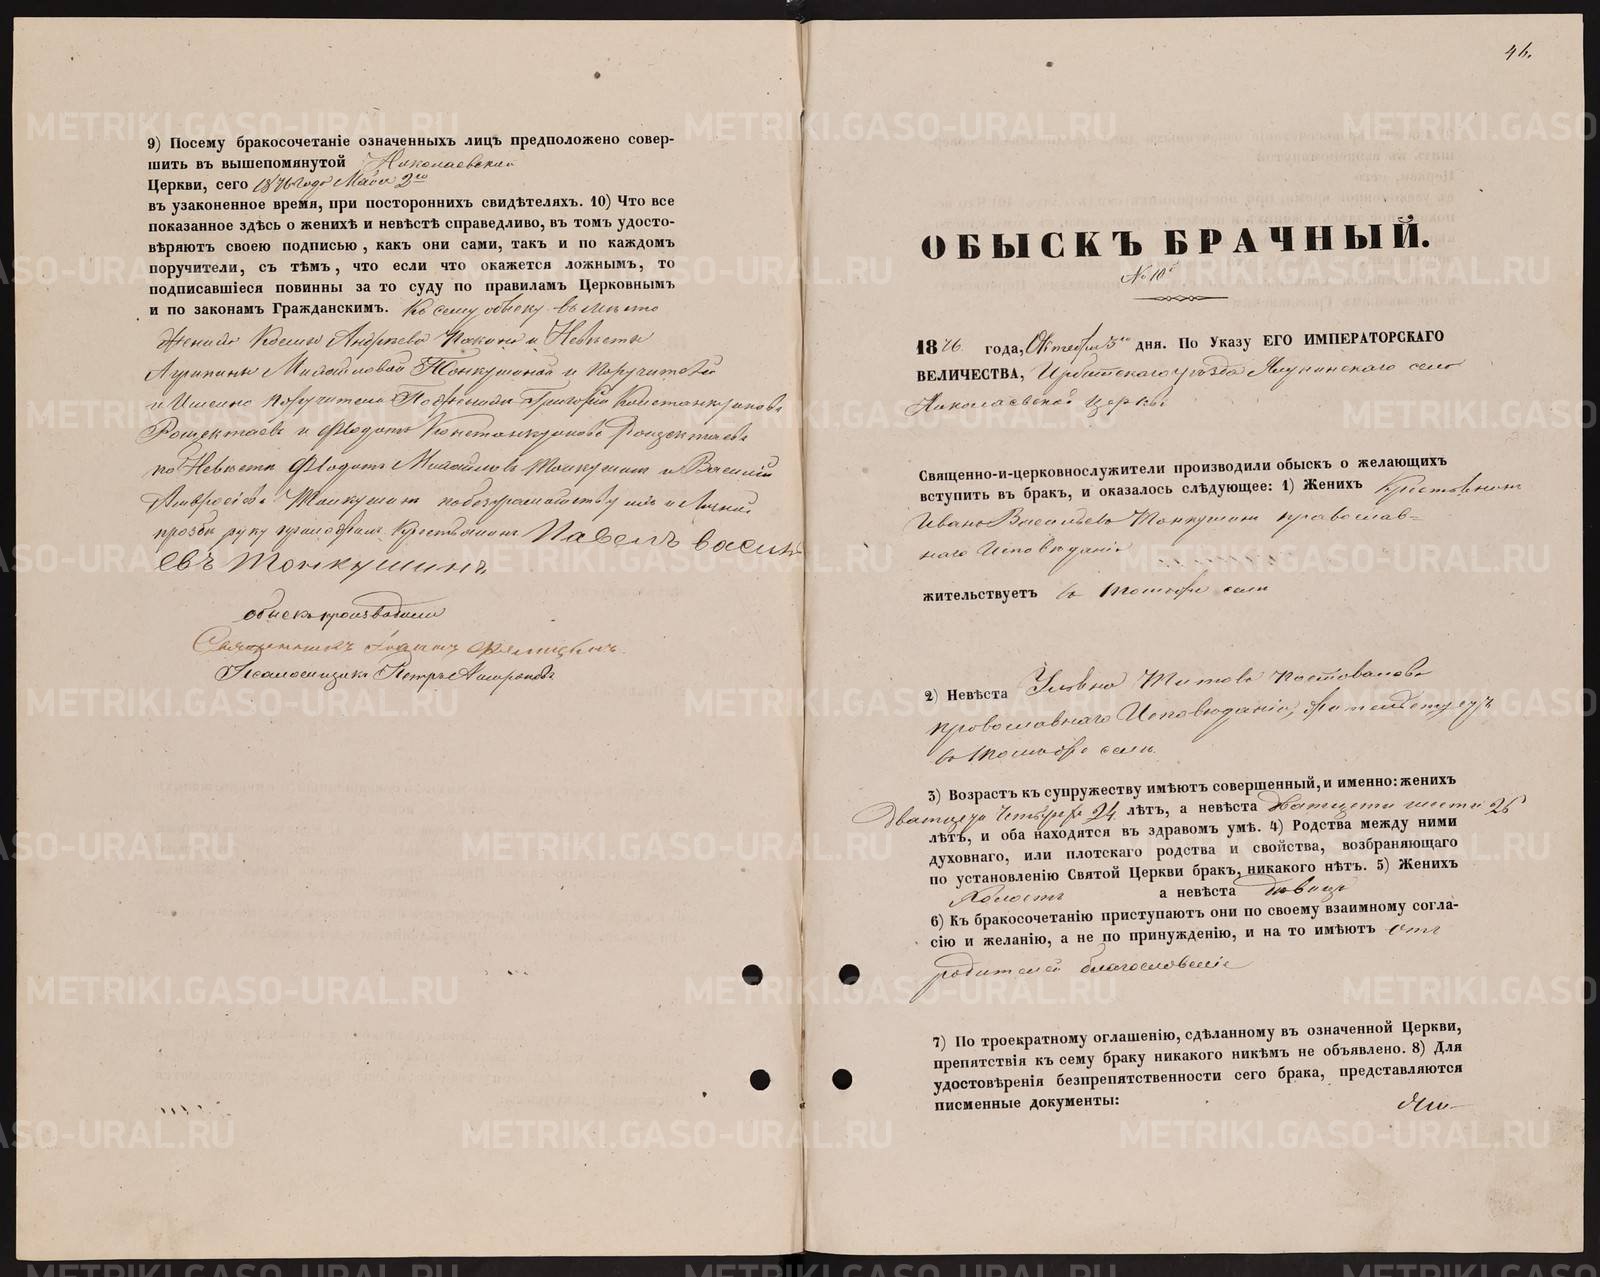 9) Посему бракосочетаніе означенныхъ лицъ предположено совер-
шить въ вышепомянутой Николаевской
Церкви, сего 1876 года Маія 2го
въ узаконенное время, при постороннихъ свидѣтеляхъ. 10) Что все
показанное здѣсь о женихѣ и невѣстѣ справедливо, въ томъ удосто-
вѣряютъ своею подписью, какъ они сами, такъ и по каждомъ
поручители, съ тѣмъ, что если что окажется ложнымъ, то
подписавшіеся повинны за то суду по правиламъ Церковнымъ
и по законамъ Гражданскимъ. Къ сему обыску вместо
Жениха Андреева и Невесты
Михайловой Тонкушиной и поручителей
и Имянно поручители По Женихе Григорій
и Федотъ
по Невесте Федотъ Михайловъ Тонкушинъ и Василій
Тонкушинъ
прозбы руку приложилъ Крестьянинъ Павелъ васил
евъ Тонкушинъ
обыскъ производили
Священникъ Іоаннъ
Псаломщикъ Петръ
46.
ОБЫСКЪ БРАЧНЫЙ.
№ 10й
1876 года, Октября 3го дня. По Указу ЕГО ИМПЕРАТОРСКАГО
ВЕЛИЧЕСТВА, Ирбитскаго уезда села
Николаевской церкви
Священно-и-церковнослужители производили обыскъ о желающихъ
вступить въ бракъ, и оказалось слѣдующее: 1) Женихъ Крестьянинъ
Иванъ Васильевъ Тонкушинъ православ-
наго Исповеданія
жительствуетъ въ томъже селе
2) Невѣста Титова
православнаго Исповеданія, жительствуетъ
въ томъже селе
3) Возрастъ къ супружеству имѣютъ совершенный, и именно: женихъ
Дватцеть Четыре 24 лѣтъ, а невѣста дватцети шести 26
лѣтъ, и оба находятся въ здравомъ умѣ. 4) Родства между ними
духовнаго, или плотскаго родства и свойства, возбраняющаго
по установленію Святой Церкви бракъ, никакого нѣтъ. 5) Женихъ
Холостъ а невѣста девица
6) Къ бракосочетанію приступаютъ они по своему взаимному согла-
сію и желанію, а не по принужденію, и на то имѣютъ отъ
родителей благословеніе
7) По троекратному оглашенію, сдѣланному въ означенной Церкви,
препятствія къ сему браку никакого никѣмъ не объявлено. 8) Для
удостовѣренія безпрепятственности сего брака, представляются
писменные документы:
METRIKI.GASO-URAL.RU